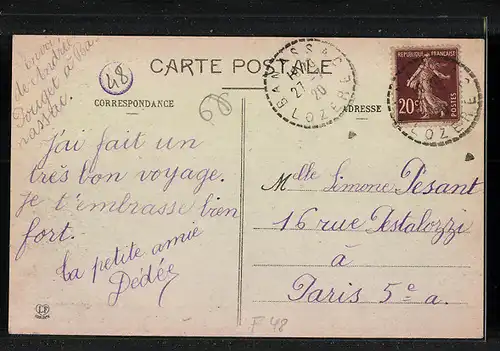 Envoi
de Andrée
Pouget à Ba
nassac
48
CARTE POSTALE
CORRESPONDANCE
ADRESSE
BANASSAC
27
20
LOZERE
REPUBLIQUE FRANÇAISE
20c
POSTES
LOZERE
J'ai fait un
très bon voyage.
Je t'embrasse bien
fort.
ta petite amie
Dédée
Melle Simone Pésant
16 rue Pestalozzi
à
Paris 5e a.
F 48